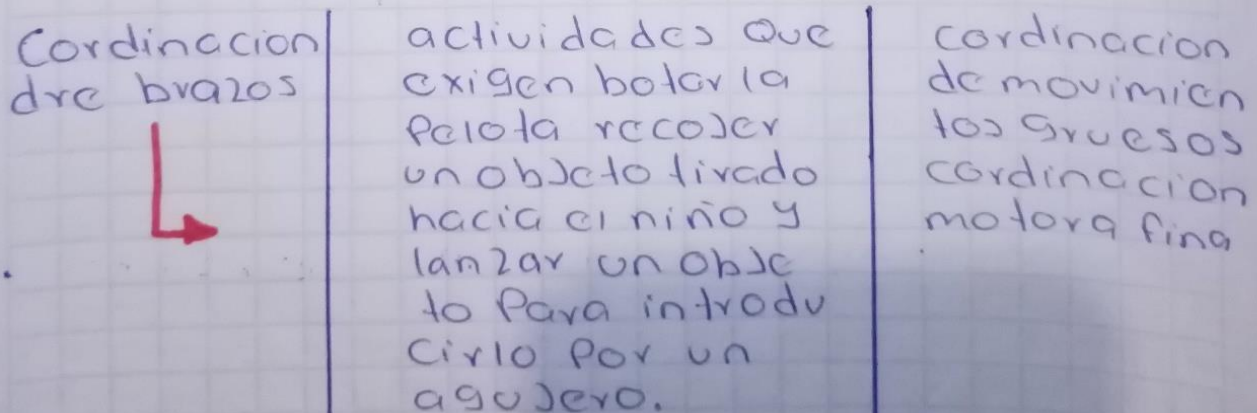 Cordinacion
dre brazos
actividades que
exigen botar la
Pelota recojer
un objeto tirado
hacia el niño y
lanzar un obje
to Para introdu
cirlo Por un
agujero.
cordinacion
de movimien
tos gruesos
cordinacion
motora fina